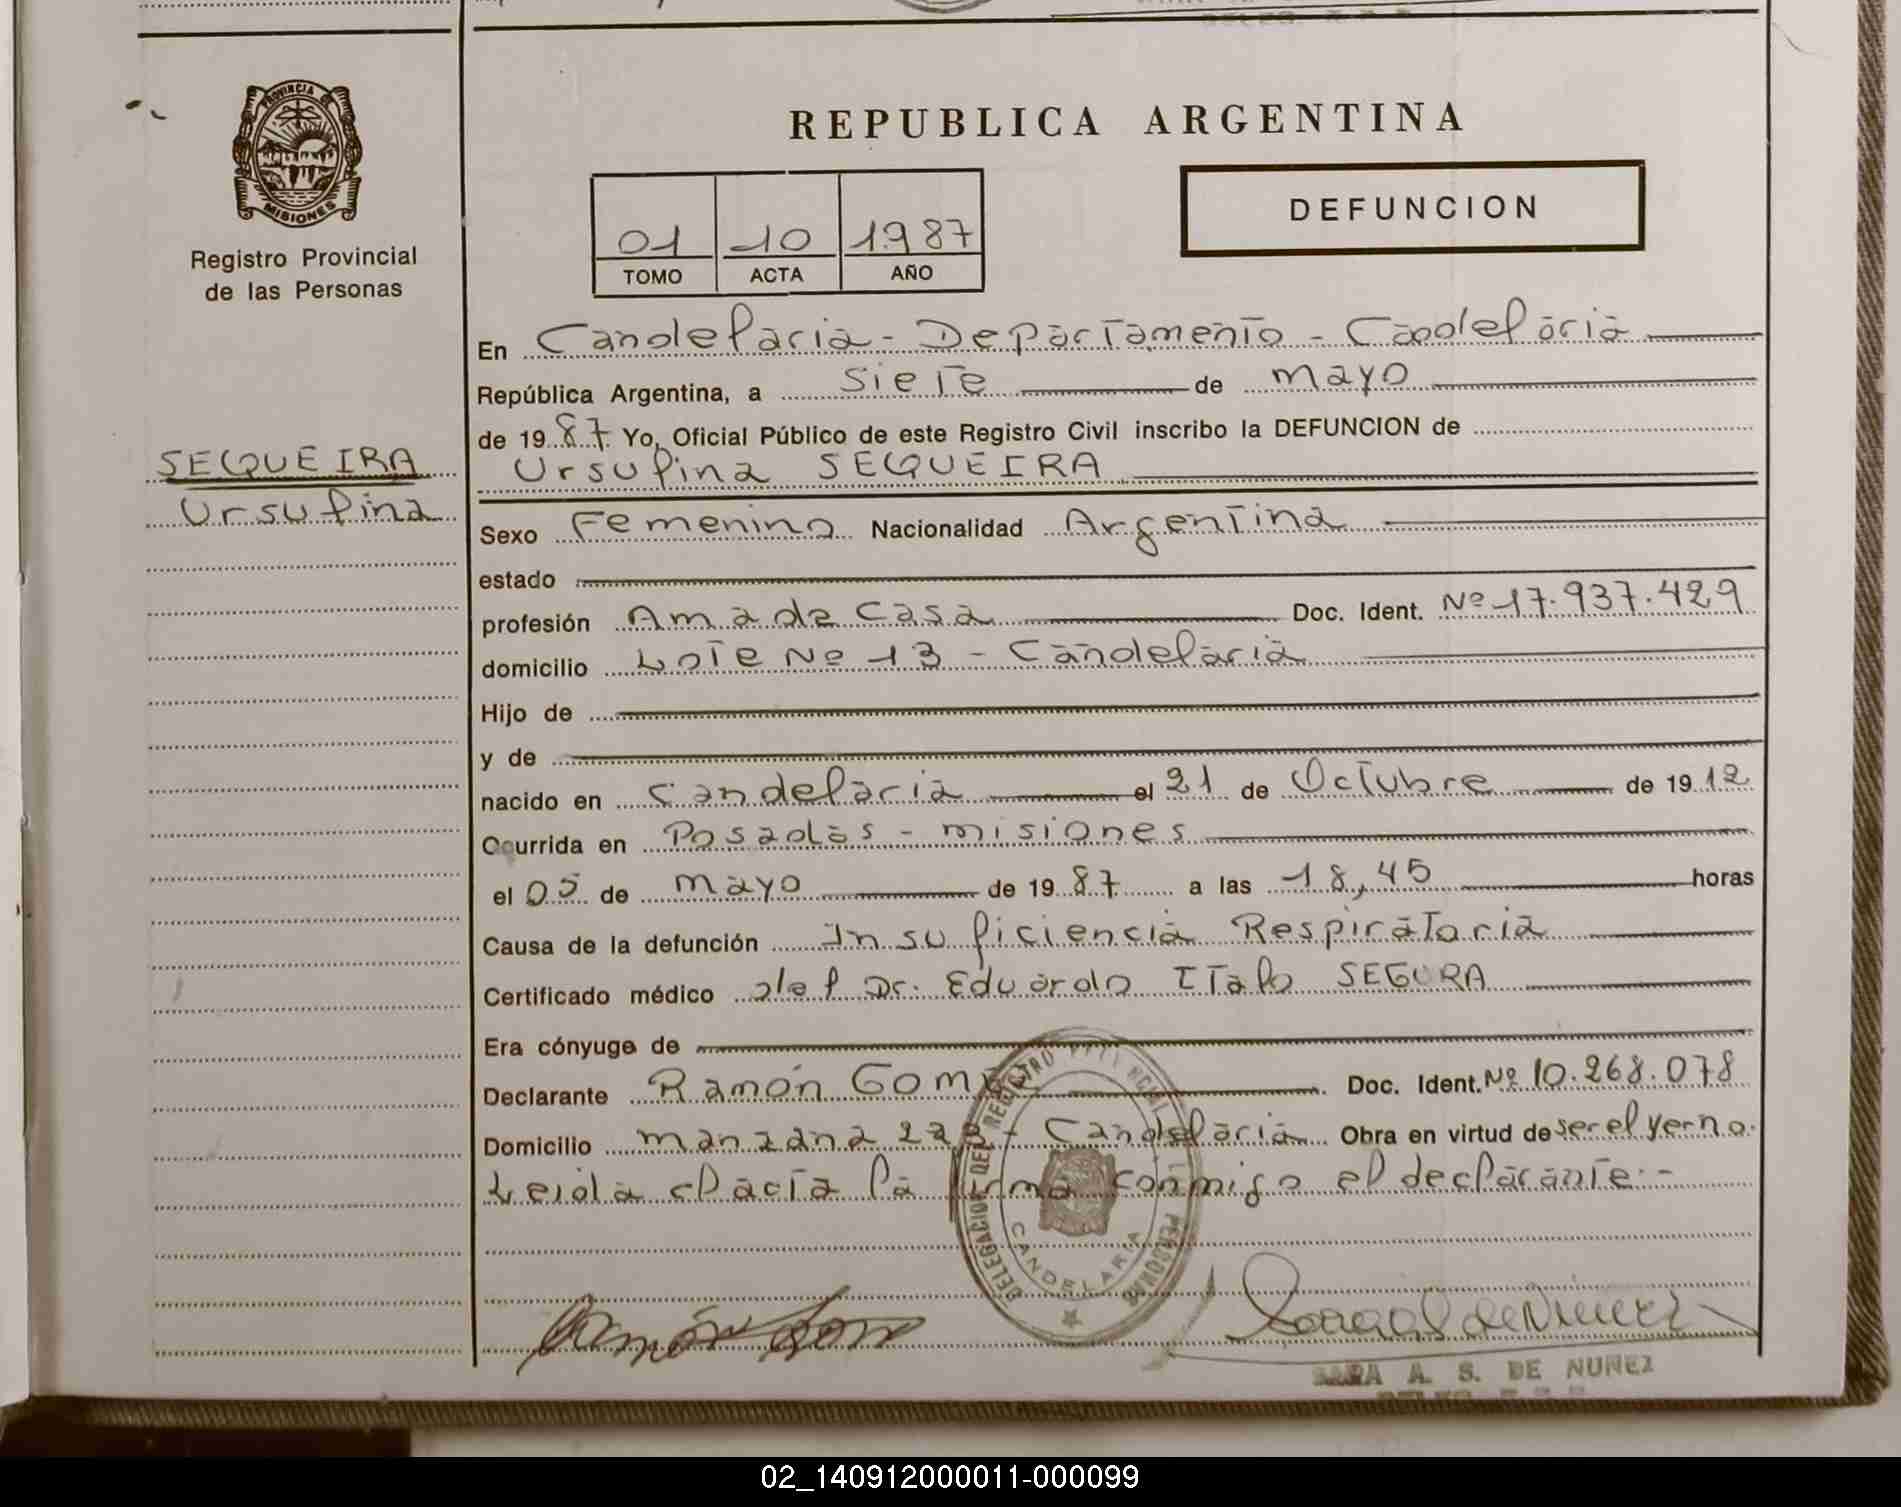 PROVINCIA DE
MISIONES
Registro Provincial
de las Personas
REPUBLICA ARGENTINA
DEFUNCION
01 10 1987
TOMO ACTA AÑO
En Candelaria - Departamento - Candelaria
República Argentina, a siete de mayo
de 1987 Yo, Oficial Público de este Registro Civil inscribo la DEFUNCION de
SEQUEIRA
Ursulina
Ursulina SEQUEIRA
Sexo Femenino Nacionalidad Argentina
estado
profesión Ama de casa Doc. Ident. Nº 17.937.429
domicilio Lote Nº 13 - Candelaria
Hijo de
y de
nacido en Candelaria el 21 de Octubre de 1912
Ocurrida en Posadas - misiones
el 05 de mayo de 1987 a las 18,45 horas
Causa de la defunción Insuficiencia Respiratoria
Certificado médico del Dr. Eduardo Italo SEGURA
Era cónyuge de
Declarante Ramón Gom Doc. Ident. Nº 10.268.078
Domicilio manzana - Candelaria Obra en virtud de ser el yerno.
Leida el acta la firma conmigo el declarante.-
DELEGACION DEL REGISTRO
CANDELARIA
SARA A. S. DE NUÑEZ
02_140912000011-000099